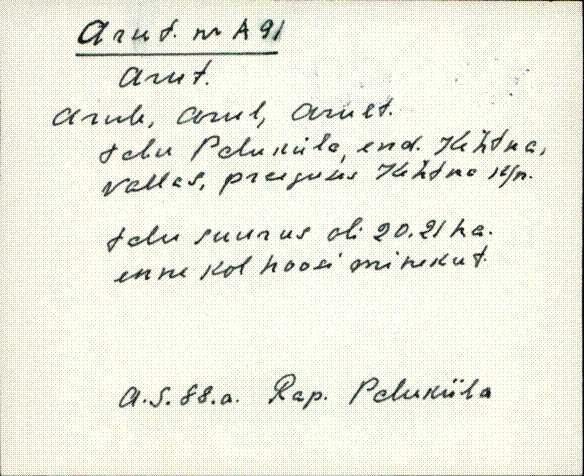 Arut. nr A 91
Arut.
Arule, Arul, Arult.
talu Paluküla, end. Kehtna,
vallas, praegune Kehtna k/n.
talu suurus oli 20.21 ha.
enne kolhoosi minekut.
A.S. 88.a. Rap. Paluküla